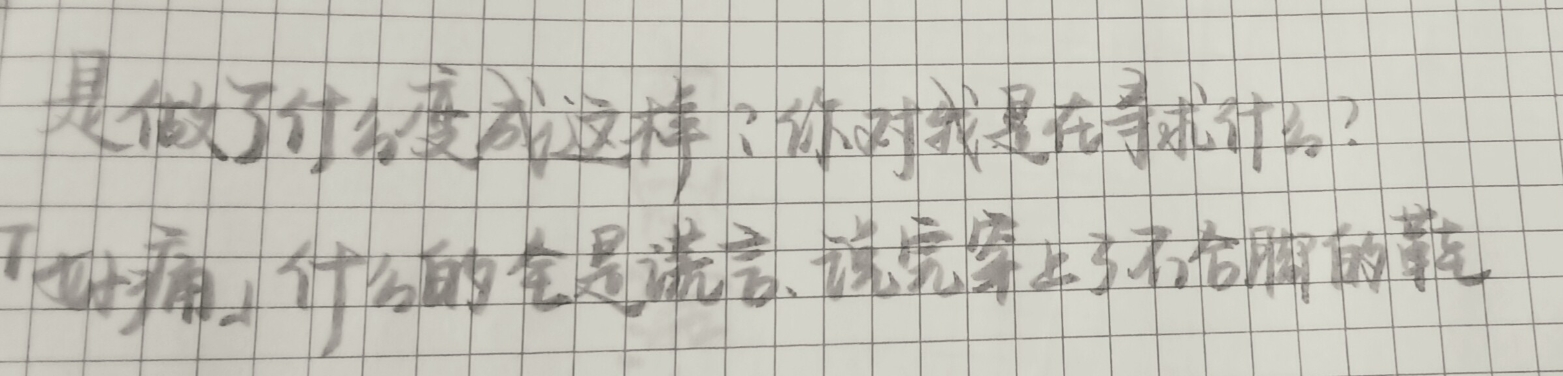 是做了什么变成这样？你对我是在寻求什么？
「好痛」什么的全是谎言、说完穿上了不合脚的鞋